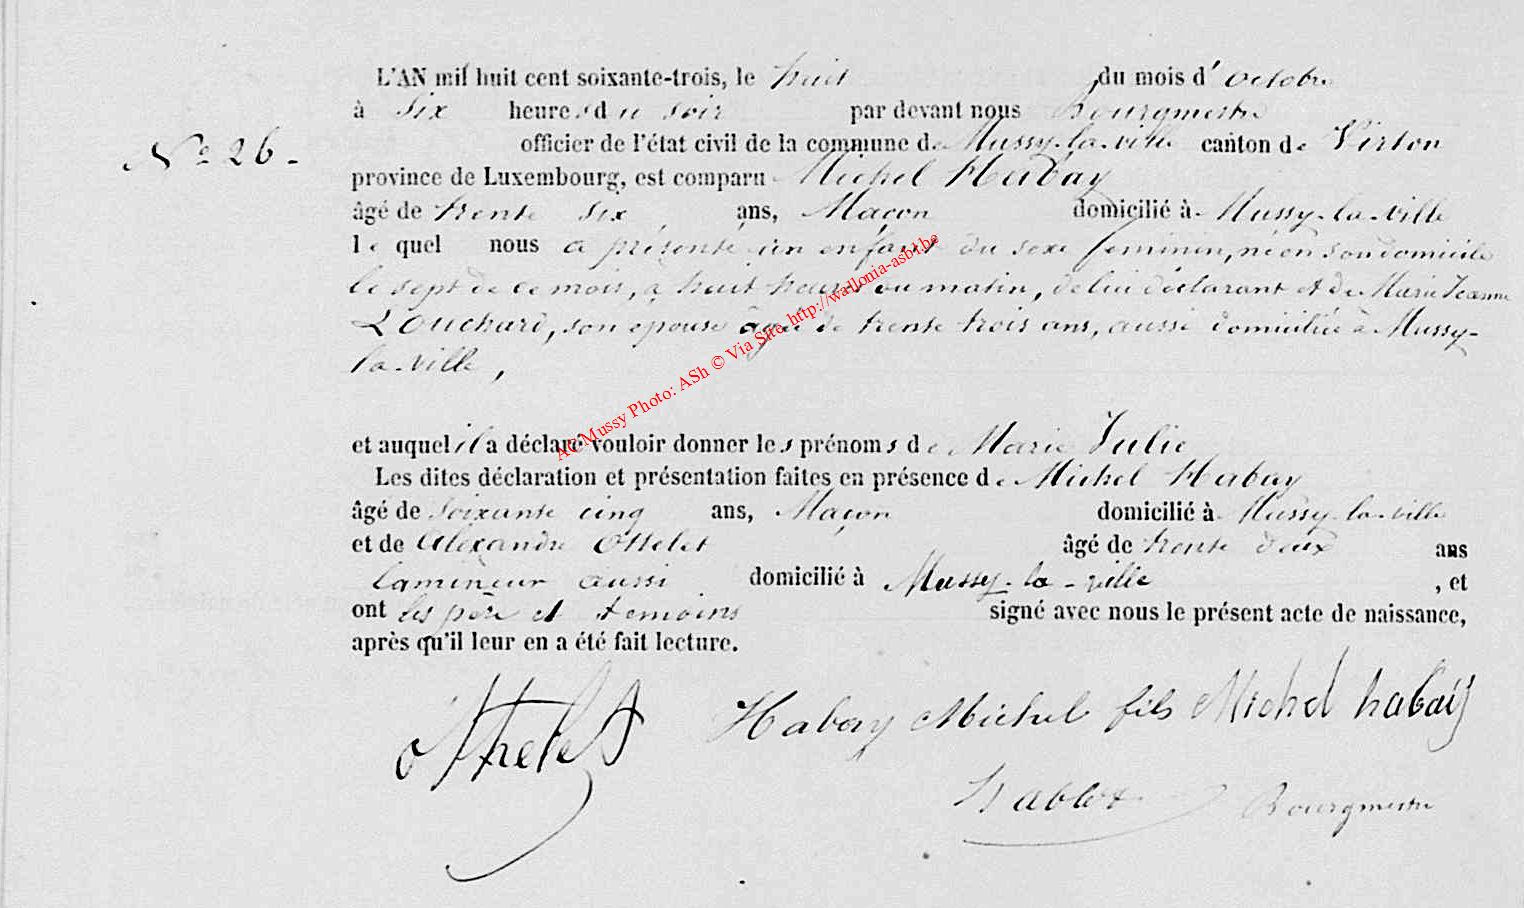 L'AN mil huit cent soixante-trois, le huit du mois d' octobre
à six heures du soir par devant nous Bourgmestre
officier de l'état civil de la commune de Mussy-la-ville canton de Virton
N° 26.
province de Luxembourg, est comparu Michel Habay
âgé de trente six ans, Maçon domicilié à Mussy-la-ville
lequel nous a présenté un enfant du sexe feminin, né en son domicile
le sept de ce mois, à huit heures du matin, de lui déclarant et de Marie Jeanne
Louchard, son epouse âgée de trente trois ans, aussi domiciliée à Mussy-
la-ville,
et auquel il a déclaré vouloir donner les prénoms de Marie Julie
Les dites déclaration et présentation faites en présence de Michel Habay
âgé de soixante cinq ans, Maçon domicilié à Mussy-la-ville
et de Alexandre Othelet âgé de trente deux ans
lamineur aussi domicilié à Mussy-la-ville, et
ont les père et temoins signé avec nous le présent acte de naissance,
après qu'il leur en a été fait lecture.
Othelet Habay Michel fils Michel habaij
Hablot Bourgmestre
AC Mussy Photo: ASh © Via Site http://wallonia-asbl.be